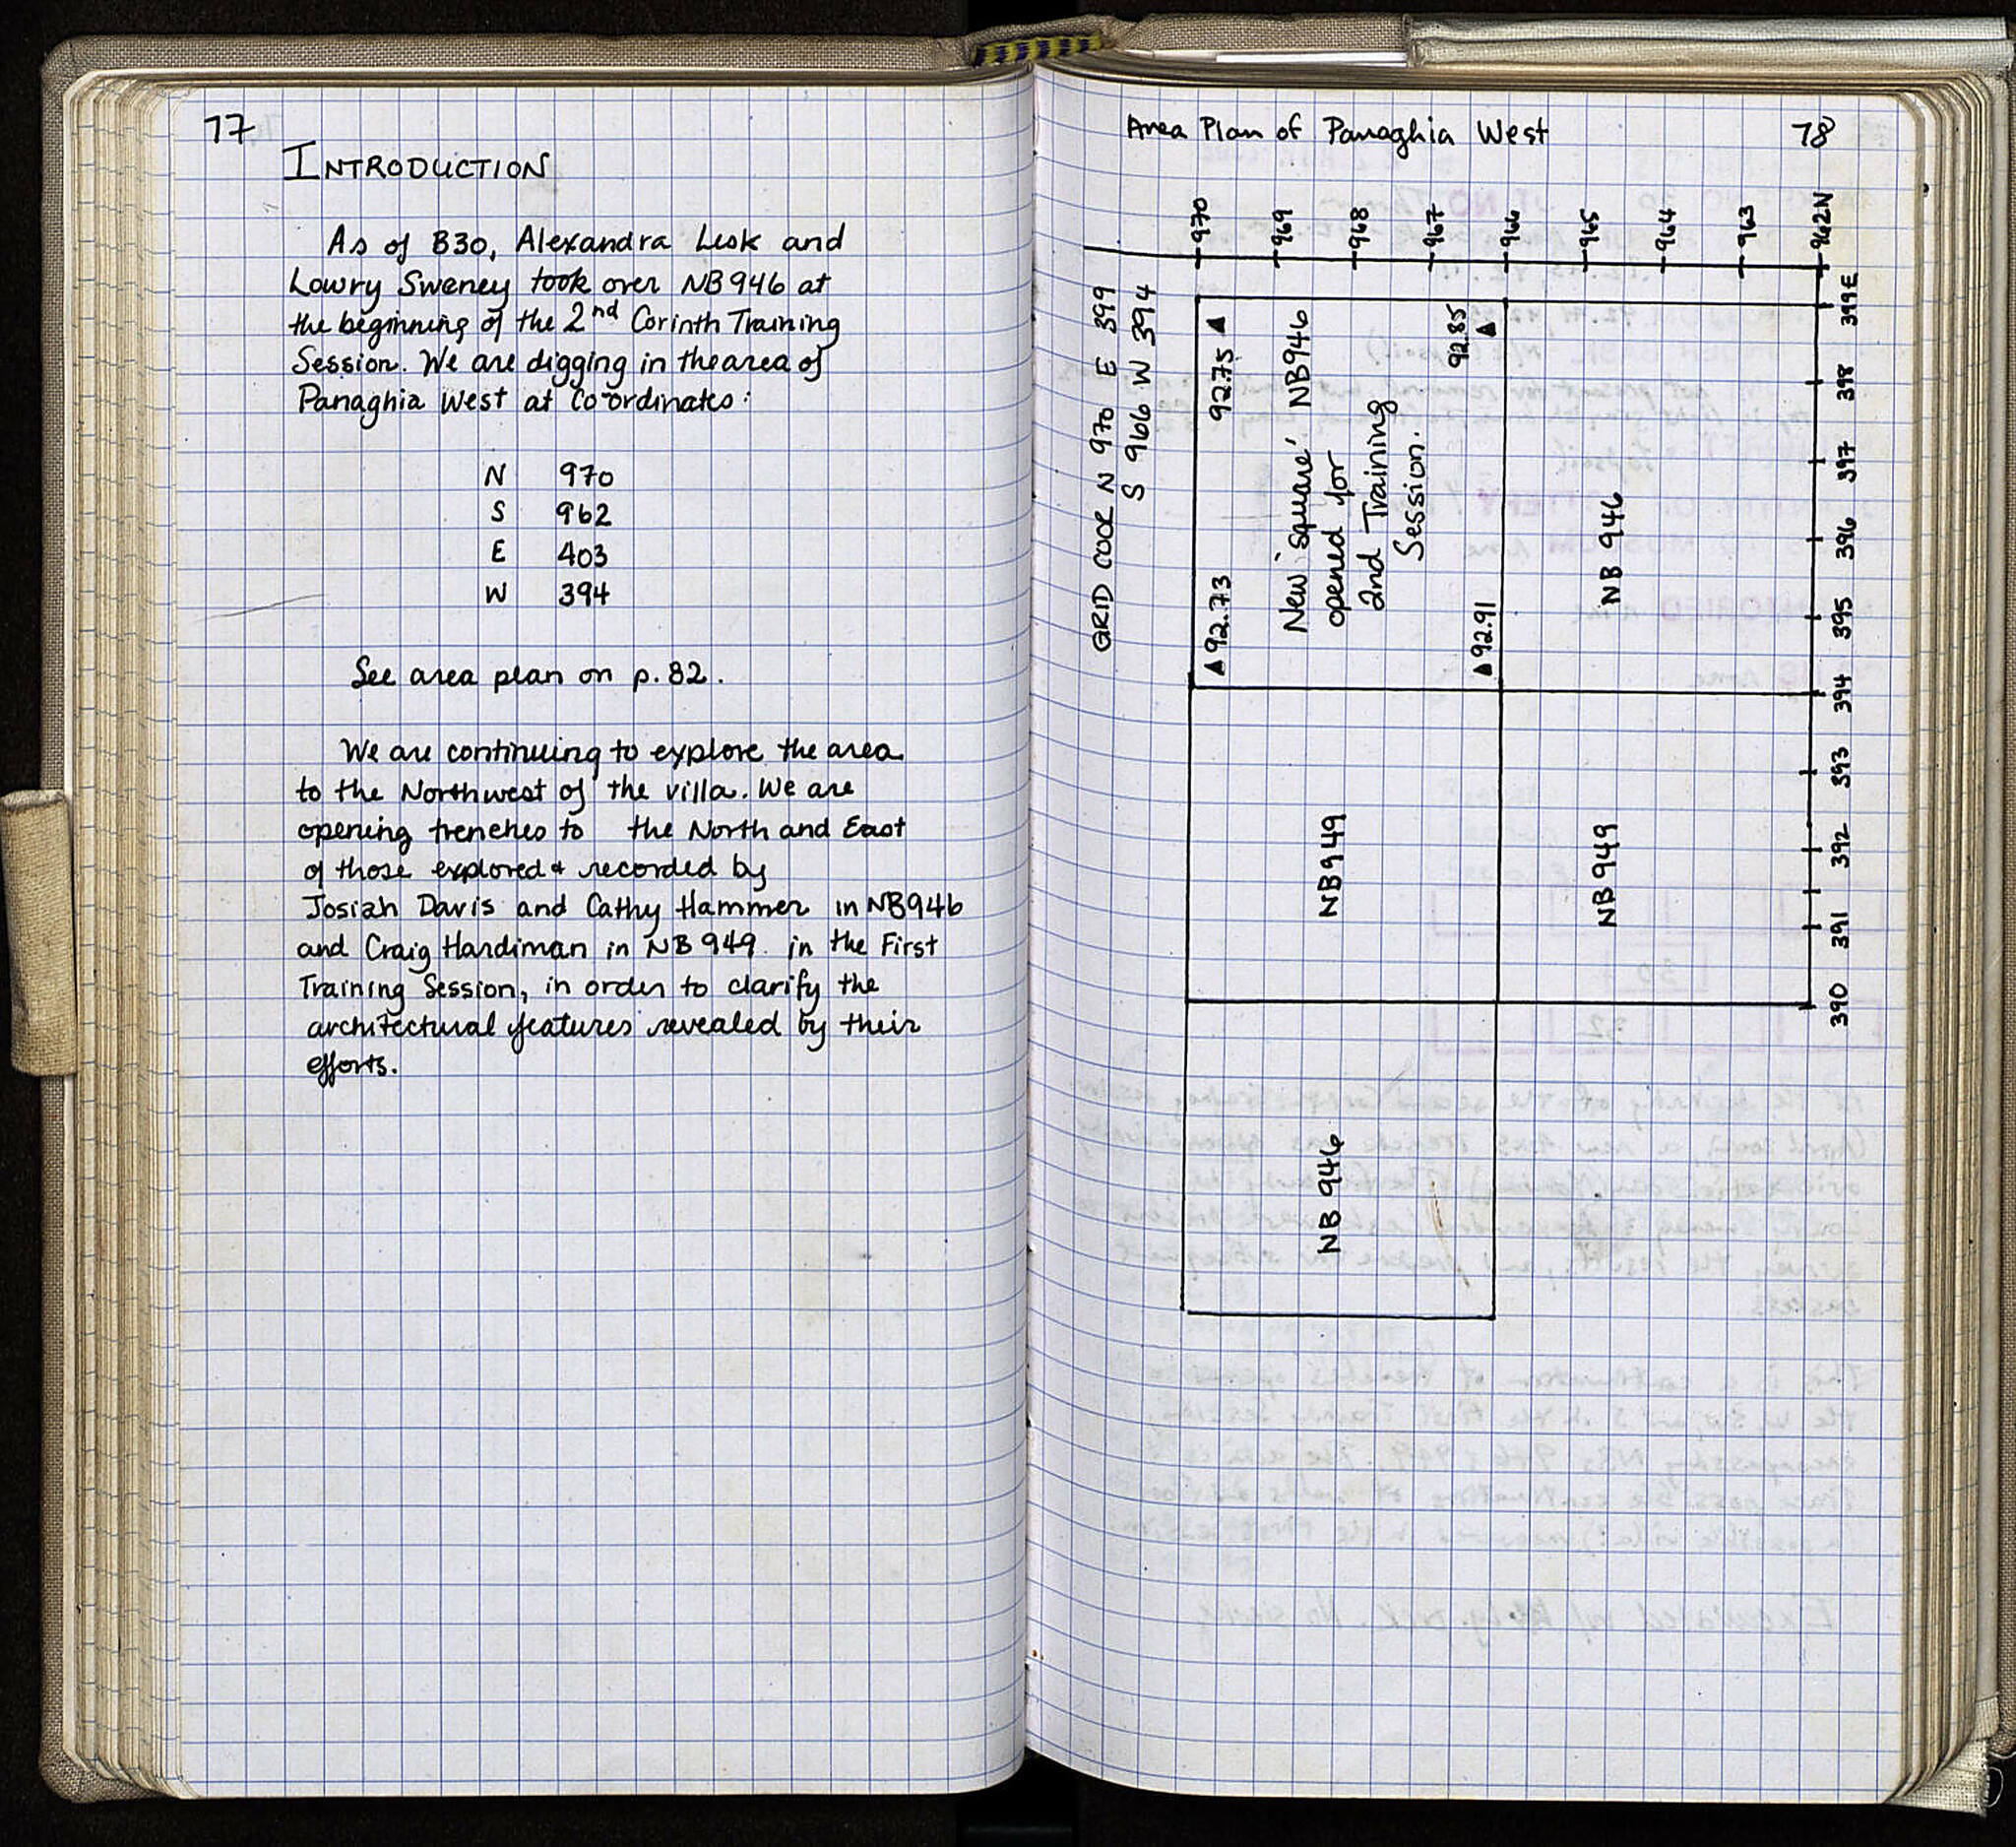 77
INTRODUCTION
As of B30, Alexandra Lesk and
Lowry Sweney took over NB946 at
the beginning of the 2nd Corinth Training
Session. We are digging in the area of
Panaghia West at co-ordinates:
N 970
S 962
E 403
W 394
See area plan on p. 82.
We are continuing to explore the area
to the Northwest of the villa. We are
opening trenches to the North and East
of those explored & recorded by
Josiah Davis and Cathy Hammer in NB946
and Craig Hardiman in NB 949. in the First
Training Session, in order to clarify the
architectural features revealed by their
efforts.
Area Plan of Panaghia West
78
GRID CODE N 970 E 399
S 966 W 394
970
969
968
967
966
965
964
963
962N
399E
398
397
396
395
394
393
392
391
390
92.73
92.75
New 'square', NB946
opened for
2nd Training
Session.
92.91
92.85
NB 946
NB949
NB 949
NB 946